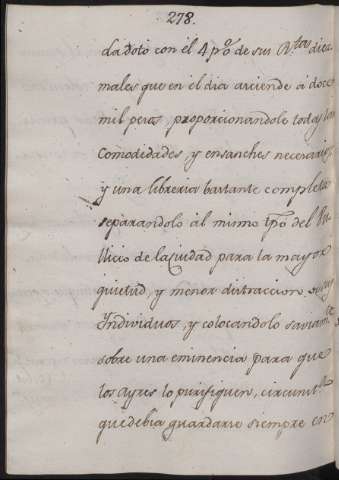 278.
la dotó con el 4 p.o de sus R.tas diez
males que en el dia asciende á doce
mil pesos, proporcionandole todas las
Comodidades, y ensanches necesarios
y una libreria bastante completa
separandolo al mismo tpō del Bu
llicio de la Ciudad para la mayor
quietud, y menor distraccion
Individuos, y colocandolo saviam.te
sobre una eminencia para que
los Ayres lo purifiquen, circunst.a
que debia guardarse siempre en